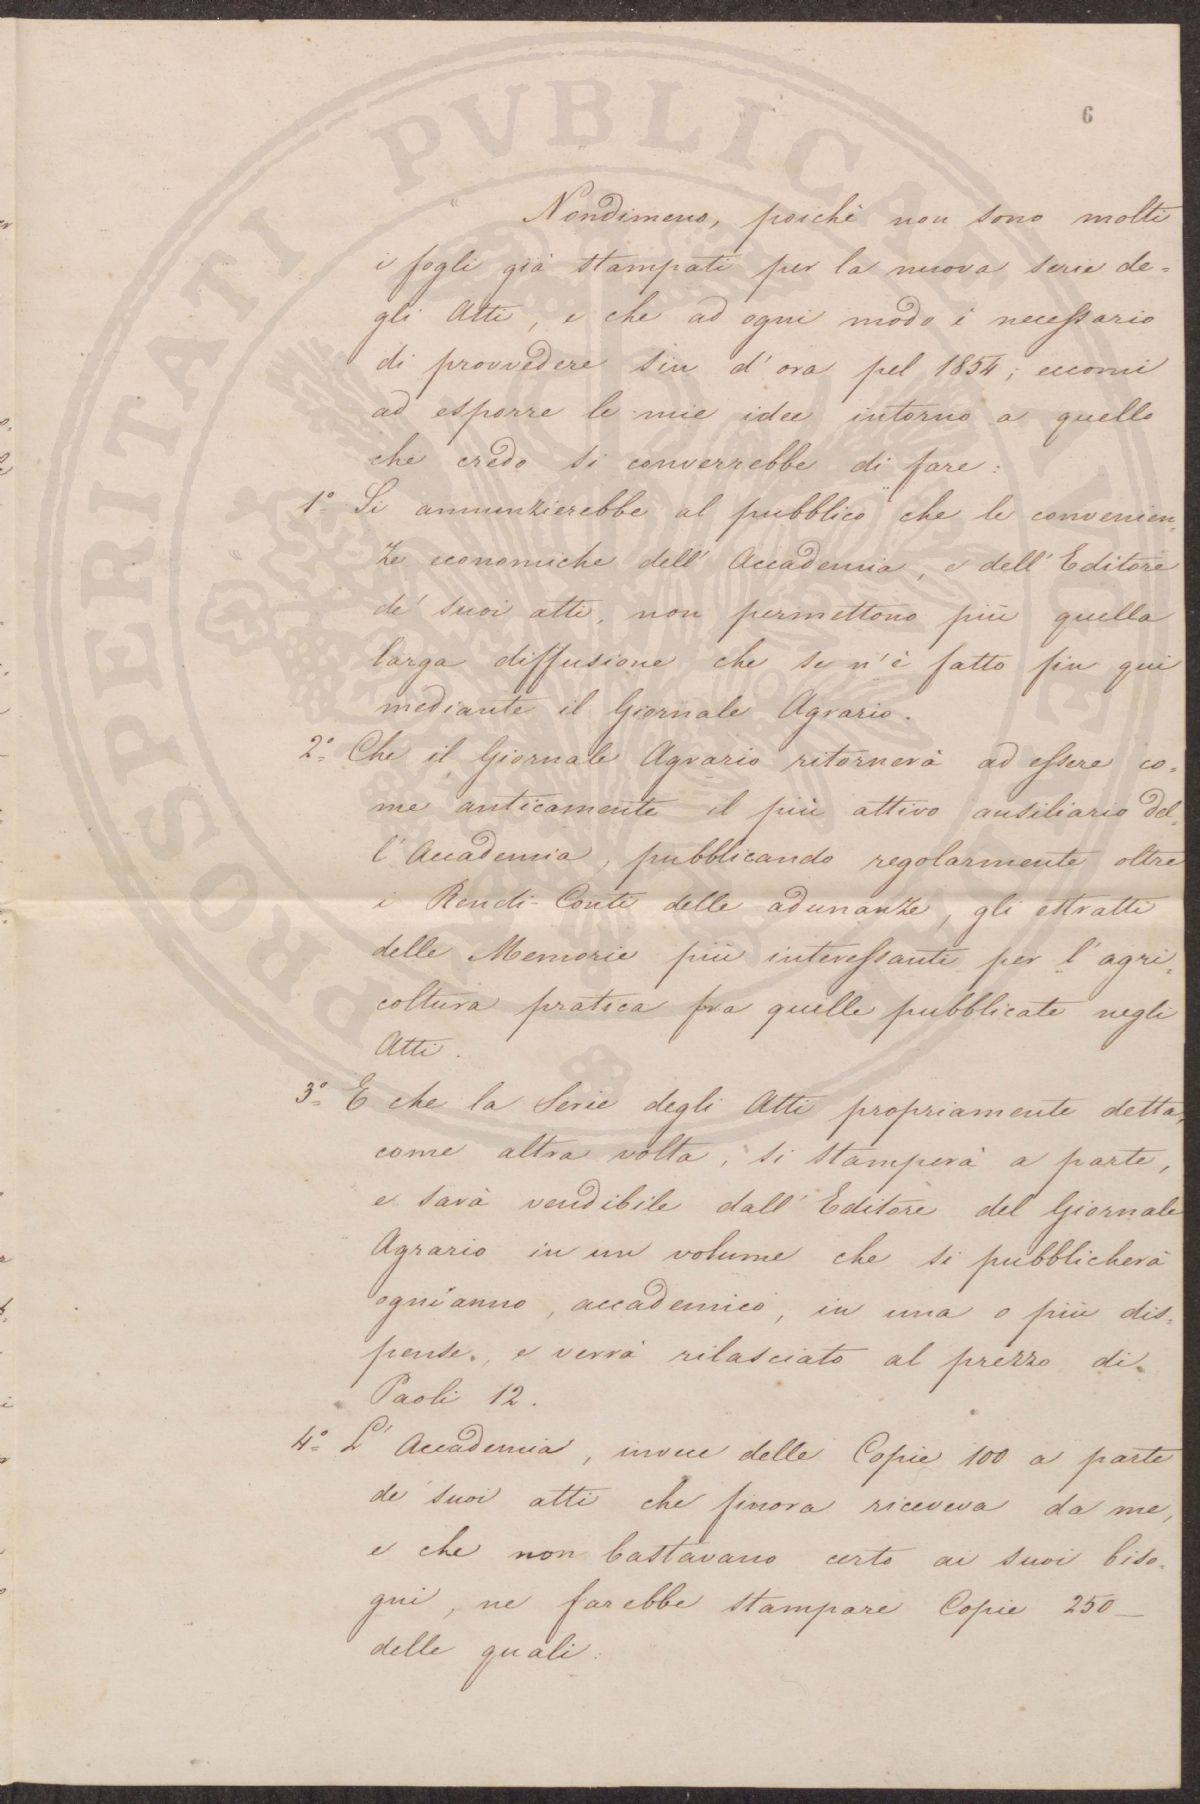 6
Nondimeno, poichè non sono molti
i fogli già stampati per la nuova serie de=
gli Atti, e che ad ogni modo è necessario
di provvedere sin d'ora pel 1854; eccomi
ad esporre le mie idee intorno a quello
che credo si converrebbe di fare:
1º Si annunzierebbe al pubblico che le convenien=
ze economiche dell'Accademia, e dell'Editore
de' suoi atti, non permettono più quella
larga diffusione che se n'è fatto fin qui
mediante il Giornale Agrario.
2º Che il Giornale Agrario ritornerà ad essere co=
me anticamente il più attivo ausiliario del=
l'Accademia, pubblicando regolarmente oltre
i Rendi-Conti delle adunanze, gli estratti
delle Memorie più interessanti per l'agri=
coltura pratica fra quelle pubblicate negli
Atti.
3º E che la Serie degli Atti propriamente detta,
come altra volta, si stamperà a parte,
e sarà vendibile dall'Editore del Giornale
Agrario in un volume che si pubblicherà
ogni anno, accademico, in una o più dis=
pense, e verrà rilasciato al prezzo di
Paoli 12.
4º L'Accademia, invece delle Copie 100 a parte
de' suoi atti che finora riceveva da me,
e che non bastavano certo ai suoi biso=
gni, ne farebbe stampare Copie 250 —
delle quali:
PROSPERITATI PVBLICAE AVGENDAE